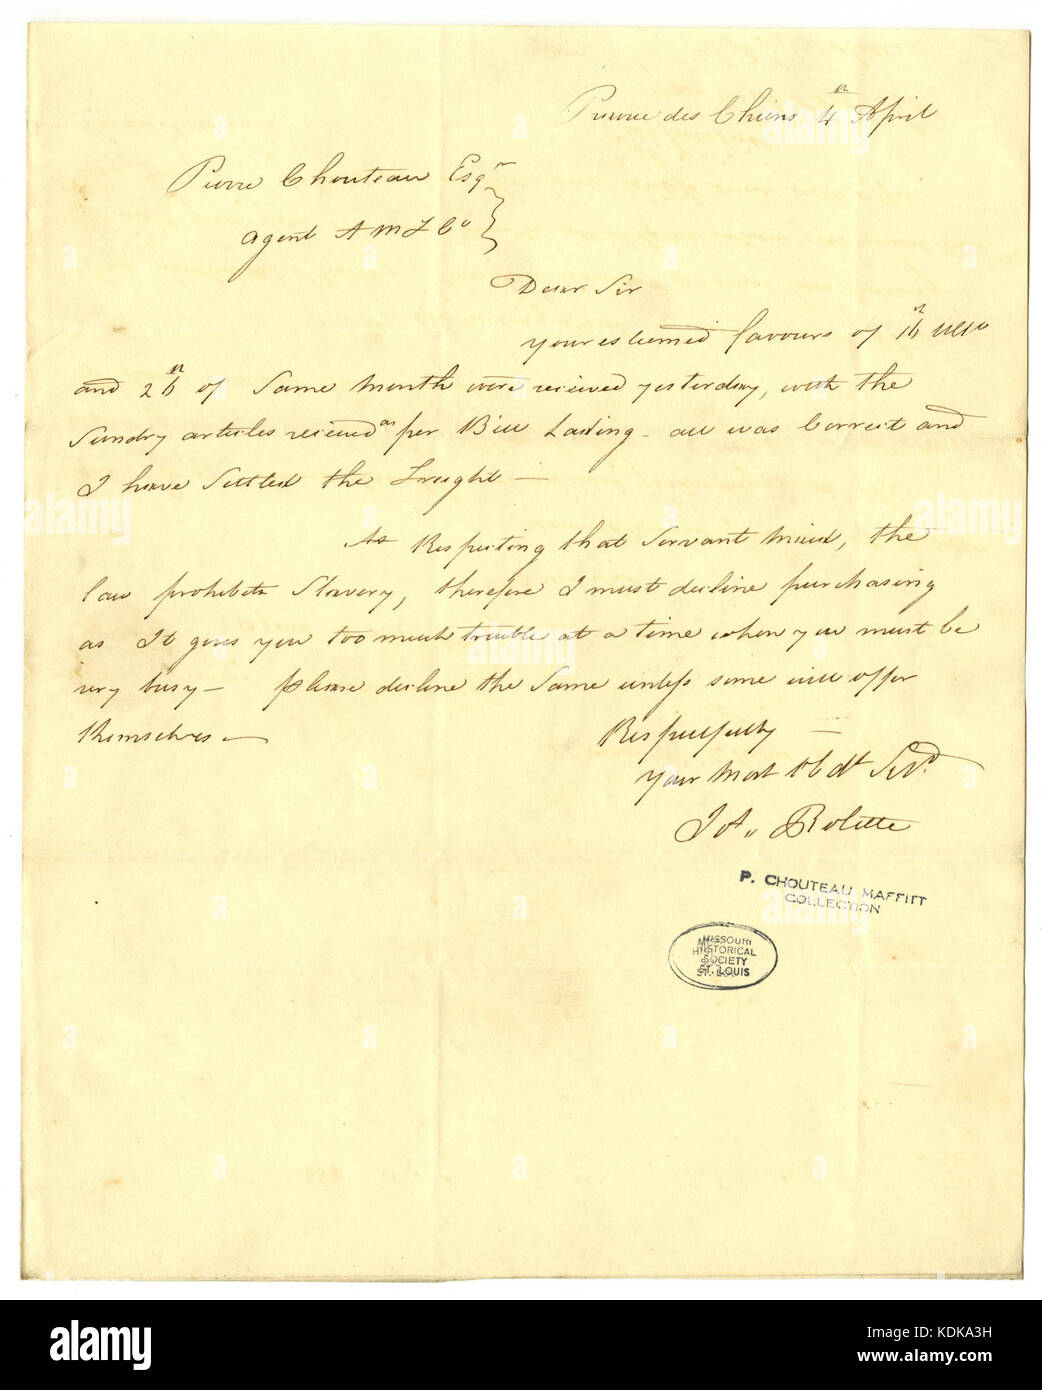 Prairie des Chiens 4th April
Pierre Chouteau Esqr
Agent A M F Co
Dear Sir
your esteemed favours of 16th Ulto
and 26th of Same month were recieved yesterday, with the
Sundry articles recieved as per Bill Lading - all was Correct and
I have Settled the Freight —
As Respecting that Servant , the
law prohibits Slavery, therefore I must decline purchasing
as It gives you too much trouble at a time when you must be
very busy — please decline the Same unless some will offer
themselves —
Respectfully —
Your Most Obdt Servt
Jos. Rolette
P. CHOUTEAU MAFFITT
COLLECTION
MISSOURI
HISTORICAL
SOCIETY
ST. LOUIS
alamy
Image ID: KDKA3H
www.alamy.com